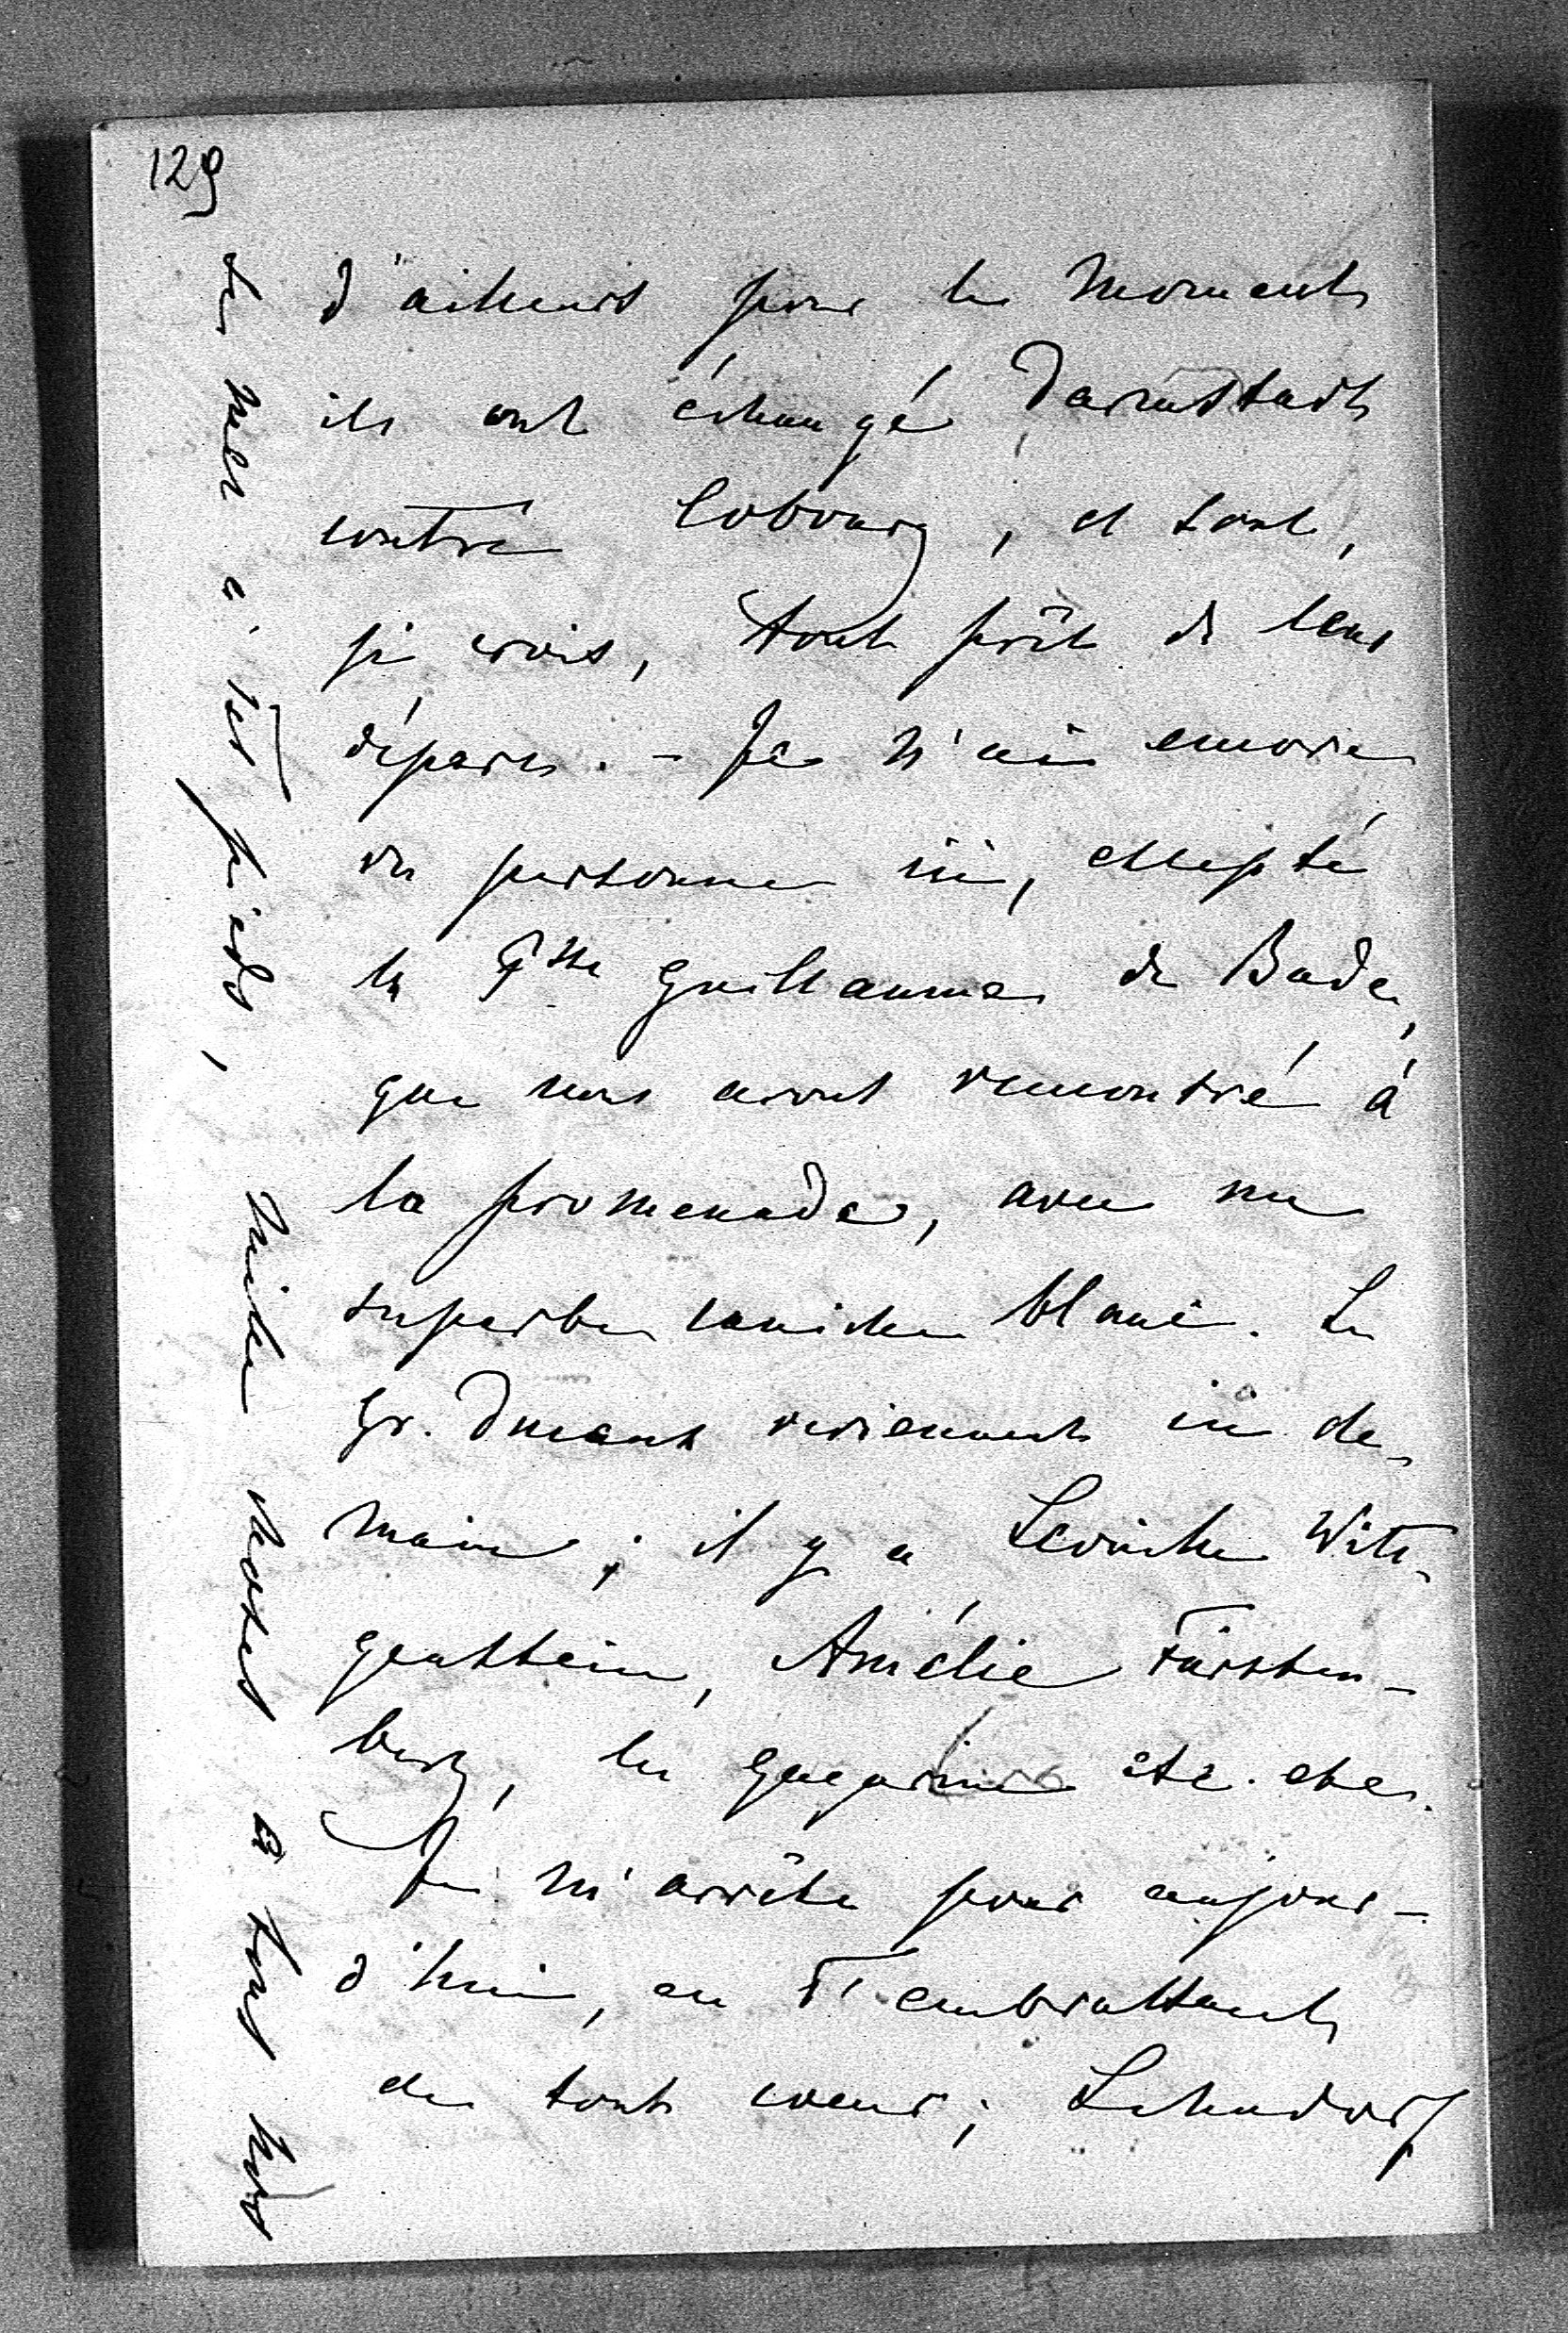 129
d'ailleurs pour le moment
ils ont échangé Darmstadt
contre Cobourg, et sont,
je crois, tout prêt de leur
départ. - Je n'ai encore
vu personne ici, excepté
la Psse Guillaume de Bade,
que nous avons rencontré à
la promenade, avec un
superbe caniche blanc. Les
Gr. Ducaux reviennent ici de-
main; il y a Léonille Witt-
genstein, Amélie Fürsten-
berg, les Gagarine etc. etc.
Je m'arrête pour aujour-
d'hui, en T'embrassant
de tout cœur; Lehndorf
se met à tes pieds,
mille choses à tous nos